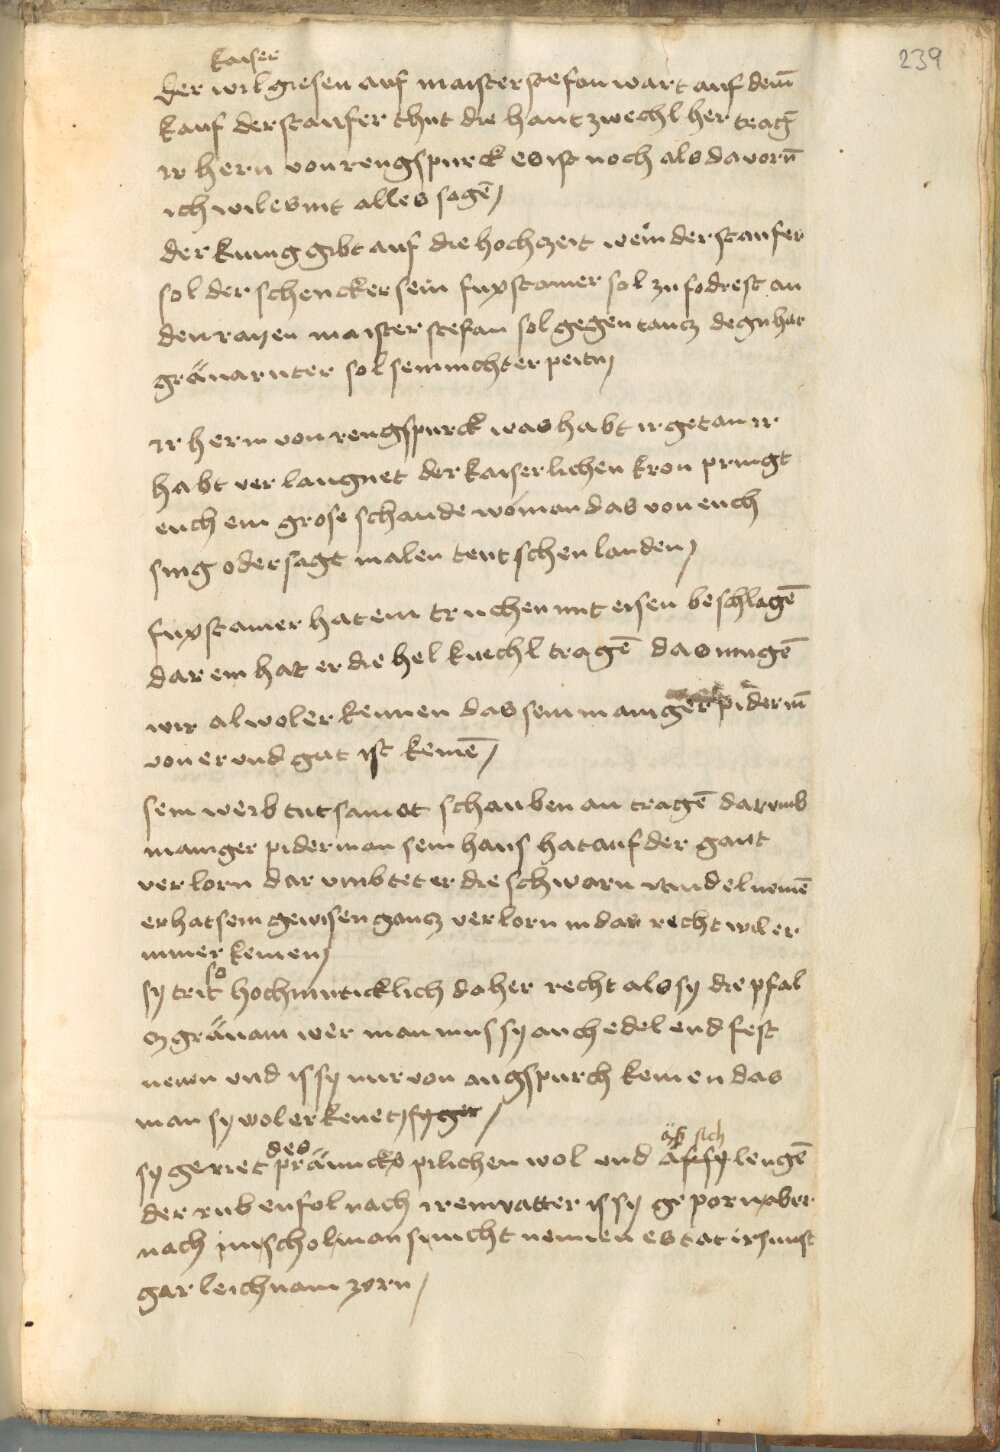 239
kaiser
der wil giesen auf maister stefan wart auf dem̄
kauf der staufer thut die hantzwechl her traḡ
ir hern von rengspurck es ist noch als da vorn̄
ich wil es nit alles sagē/
der kunig gibt auf die hochzeit wein der staufer
sol der schencker sein fuxstainer sol zu fodrest an
den rayen maister stefan sol gegen tantz
sol sein nichter peitn/
ir hern von rengspurck was habt ir getan ir
habt verlaugnet der kaiserlichen kron pringt
euch ein grose schande wo man das von euch
sing oder sagt in alen teutschen landen/
fuxstainer hat ein truchen mit eisen beschlagē
dar ein hat er die hel kuechl tragē das mugē
wir al wol erkennen das sein maniger piderm̄
von er und gut ist kemē/
sein weib tut samat schauben an tragē darumb
maniger piderman sein haus hat auf der gant
verlorn dar umb tet er die schwarn wandel nemē
er hat sein gewisen gantz verlorn in das recht wil er
nimer kemen/
so
sy trit hochmuticklich daher recht als sy die pfal
man mus sy auch edel und fest
nenn und is sy nur von augspurch kemen das
man sy wol erkenet/
des äß sich
sy geriet pränncks pilichen wol und lengē
der ruben fol nach irem vatter is sy geporn aber
nach im schol man sy nicht nennen es tat ir sunst
gar leichnam zorn/